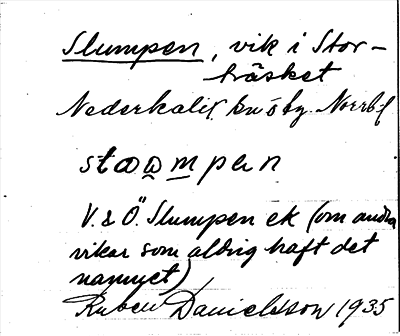 Slumpen, vik i Stor-
träsket
Nederkalix sn ö by Norrb.
V. & Ö. Slumpen ek (om andra
vikar som aldrig haft det
namnet)
Ruben Danielsson 1935